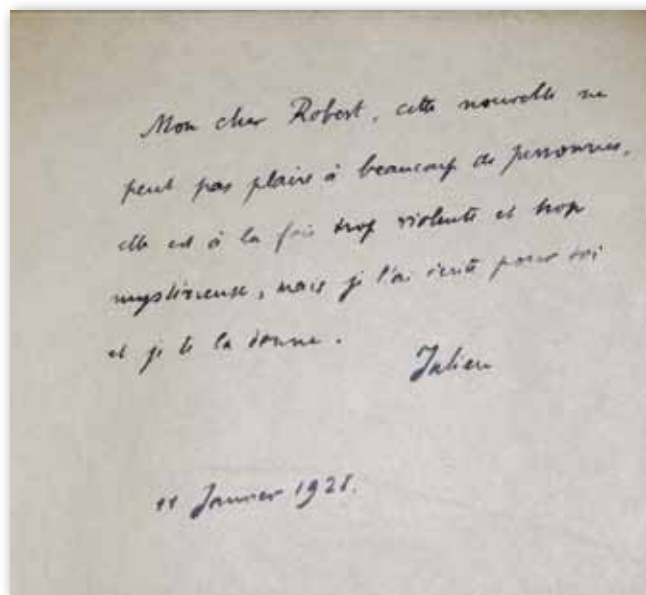 Mon cher Robert, cette nouvelle ne
peut pas plaire à beaucoup de personnes,
elle est à la fois trop violente et trop
mystérieuse, mais je l'ai écrite pour toi
et je te la donne.
Julien
11 Janvier 1928.